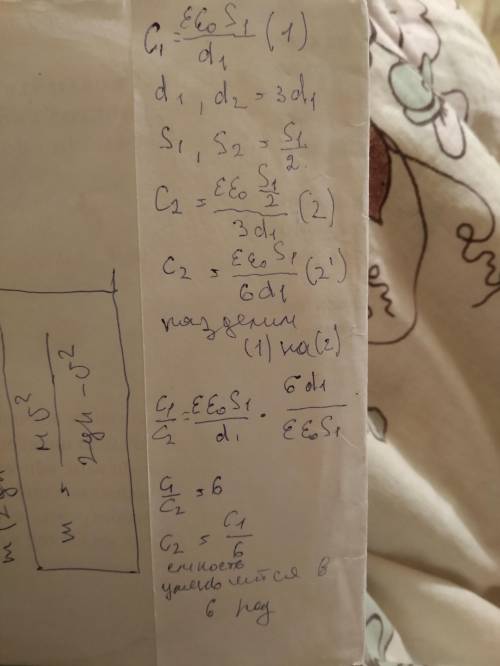 C₁ = εε₀S₁/d₁ (1)
d₁, d₂ = 3d₁
S₁, S₂ = S₁/2
C₂ = εε₀ (S₁/2)/3d₁ (2)
C₂ = εε₀S₁/6d₁ (2')
разделим
(1) на (2')
C₁/C₂ = εε₀S₁/d₁ · 6d₁/εε₀S₁
C₁/C₂ = 6
C₂ = C₁/6
емкость
уменьшится в
6 раз
m = Mv²/2gh - v²